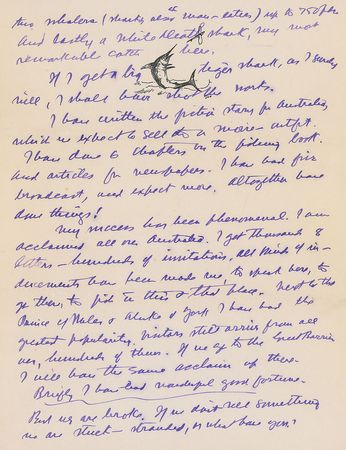 two whalers (sharks also man-eaters) up to 750 lbs
And lastly a white death shark, my most
remarkable catch here.
If I get a big tiger shark, as I surely
will, I shall have shot the works.
I have written the fiction story for Australia,
which we expect to sell to a movie-outfit.
I have done 6 chapters on the fishing book.
and articles for newspapers. I have had five
broadcast, and expect more. Altogether have
done things!
My success has been phenomenal. I am
acclaimed all over Australia. I get thousands of
letters – hundreds of invitations, all kinds of in-
ducements have been made me to speak here, to
go there, to fish in this & that place. Next to the
Prince of Wales & Duke of York I have had the
greatest popularity. Visitors still arrive from all
over, hundreds of them. If we go to the Great Barrier
I will have the same acclaim up there.
Briefly I have had wonderful good fortune.
But we are broke. If we don't sell something
we are stuck – stranded, or what have you?